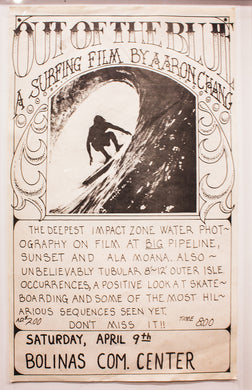 OUT OF THE BLUE
A SURFING FILM BY AARON CHANG
THE DEEPEST IMPACT ZONE WATER PHOT-
OGRAPHY ON FILM AT BIG PIPELINE,
SUNSET AND ALA MOANA. ALSO -
UNBELIEVABLY TUBULAR 8-12' OUTER ISLE.
OCCURRENCES, A POSITIVE LOOK AT SKATE-
BOARDING AND SOME OF THE MOST HIL-
ARIOUS SEQUENCES SEEN YET.
AD* 2.00 DON'T MISS IT!! TIME 8:00
SATURDAY, APRIL 9th
BOLINAS COM. CENTER